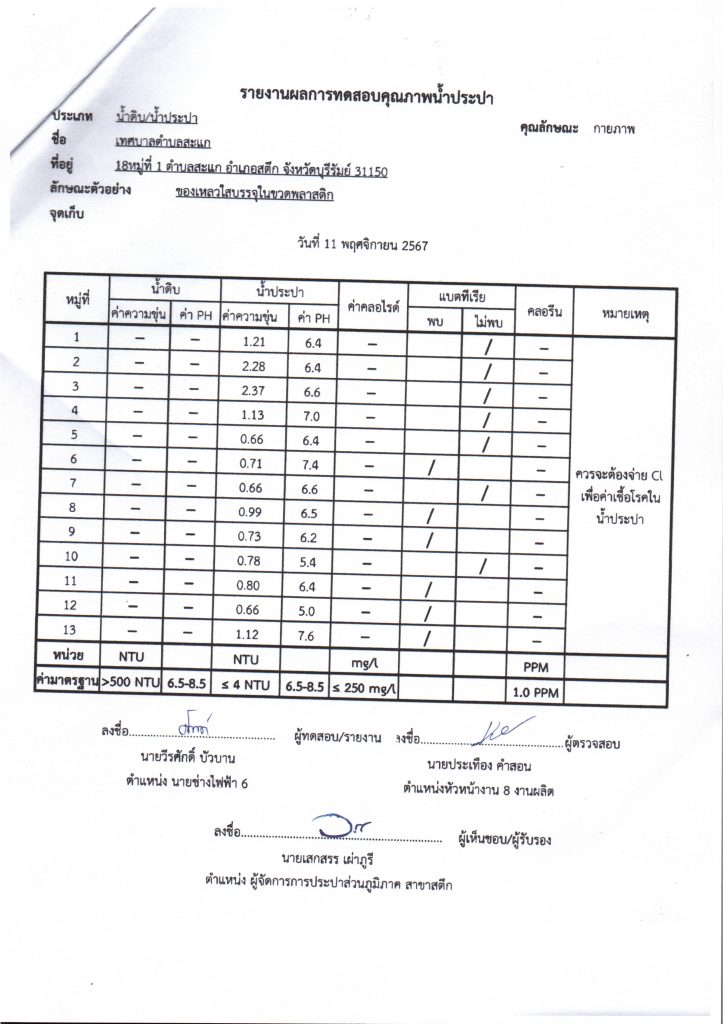 รายงานผลการทดสอบคุณภาพน้ำประปา
ประเภท น้ำดิบ/น้ำประปา
คุณลักษณะ กายภาพ
ชื่อ เทศบาลตำบลสะแก
ที่อยู่ 18หมู่ที่ 1 ตำบลสะแก อำเภอสตึก จังหวัดบุรีรัมย์ 31150
ลักษณะตัวอย่าง ของเหลวใสบรรจุในขวดพลาสติก
จุดเก็บ
วันที่ 11 พฤศจิกายน 2567
หมู่ที่ น้ำดิบ น้ำประปา ค่าคลอไรด์ แบตทีเรีย คลอรีน หมายเหตุ
ค่าความขุ่น ค่า PH ค่าความขุ่น ค่า PH พบ ไม่พบ
1 – – 1.21 6.4 – / –
2 – – 2.28 6.4 – / –
3 – – 2.37 6.6 – / –
4 – – 1.13 7.0 – / –
5 – – 0.66 6.4 – / –
6 – – 0.71 7.4 – / –
7 – – 0.66 6.6 – / –
8 – – 0.99 6.5 – / –
9 – – 0.73 6.2 – / –
10 – – 0.78 5.4 – / –
11 – – 0.80 6.4 – / –
12 – – 0.66 5.0 – / –
13 – – 1.12 7.6 – / –
ควรจะต้องจ่าย Cl
เพื่อค่าเชื้อโรคใน
น้ำประปา
หน่วย NTU NTU mg/l PPM
ค่ามาตรฐาน >500 NTU 6.5-8.5 ≤ 4 NTU 6.5-8.5 ≤ 250 mg/l 1.0 PPM
ลงชื่อ ผู้ทดสอบ/รายงาน ลงชื่อ ผู้ตรวจสอบ
นายวีรศักดิ์ บัวบาน นายประเทือง คำสอน
ตำแหน่ง นายช่างไฟฟ้า 6 ตำแหน่งหัวหน้างาน 8 งานผลิต
ลงชื่อ ผู้เห็นชอบ/ผู้รับรอง
นายเสกสรร เผ่าภูรี
ตำแหน่ง ผู้จัดการการประปาส่วนภูมิภาค สาขาสตึก